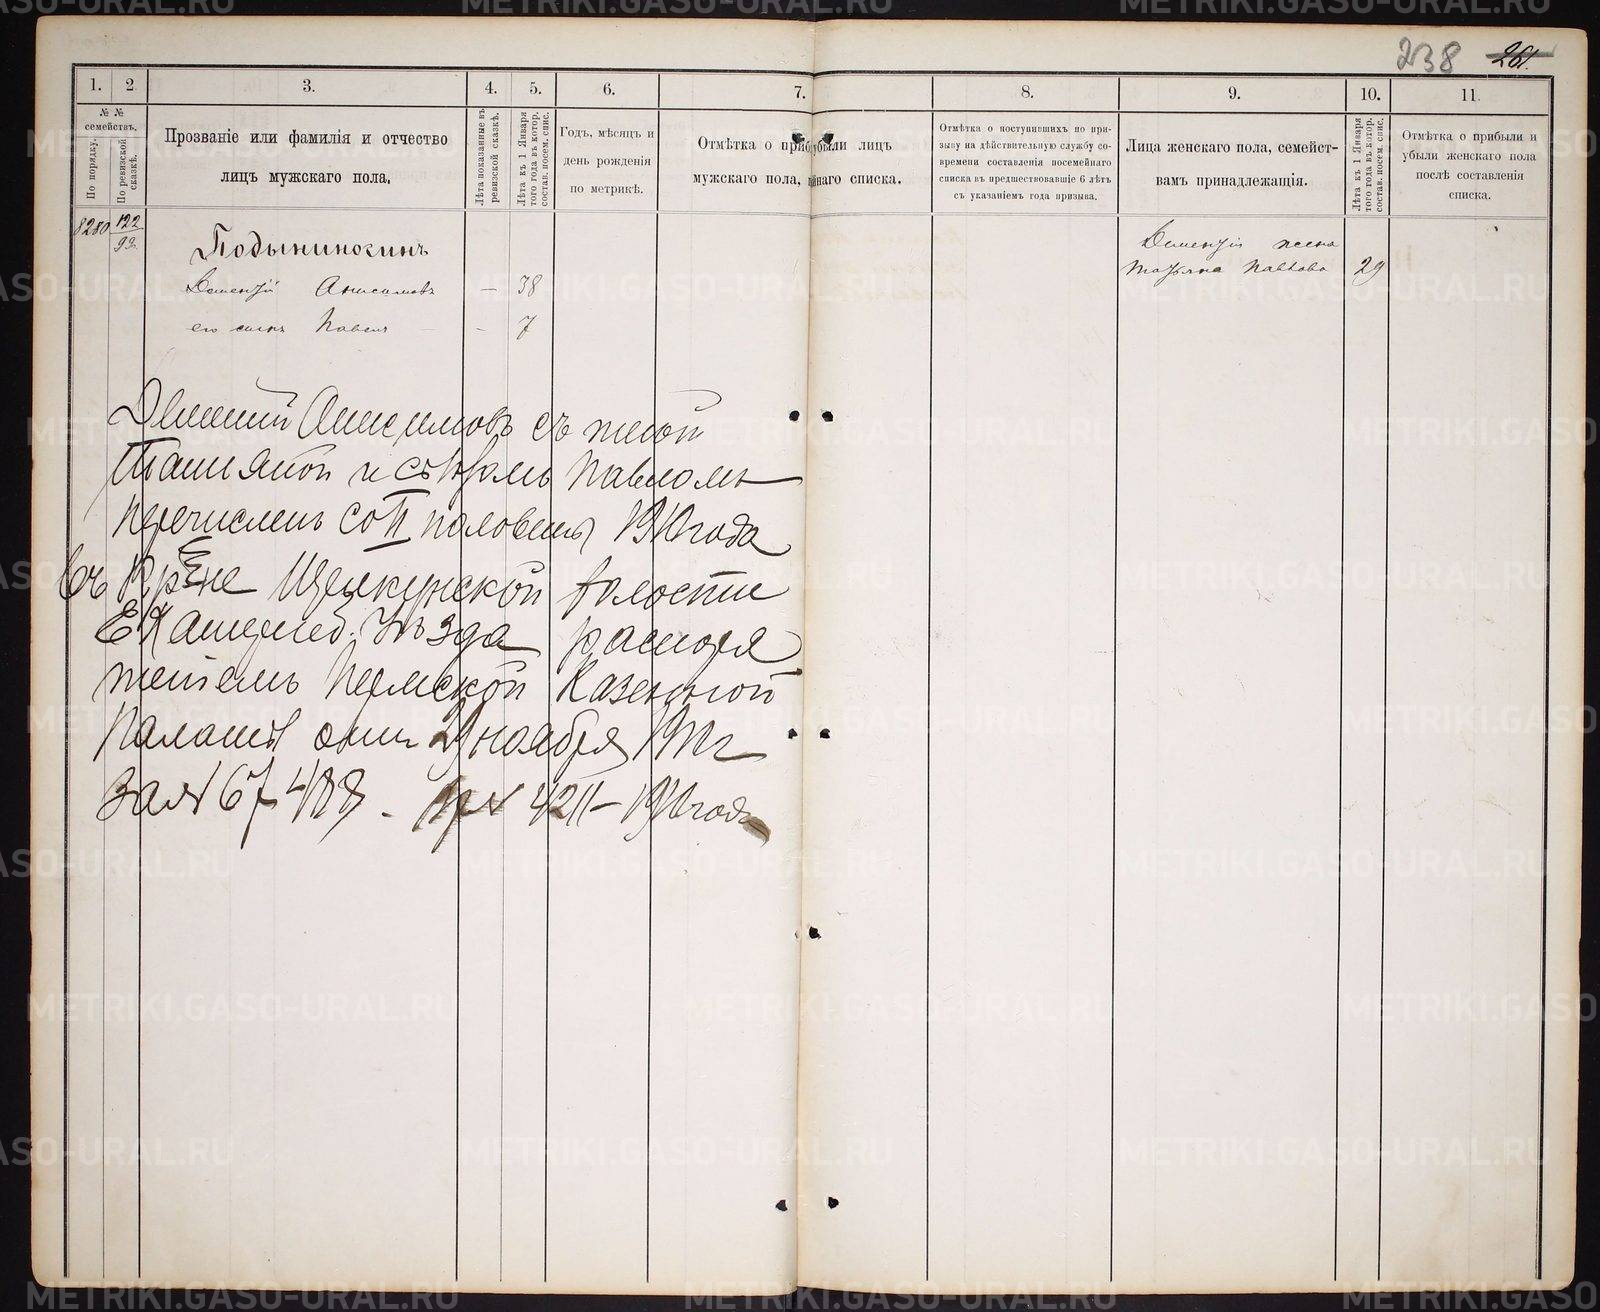 238 261.
1. 2. 3. 4. 5. 6. 7. 8. 9. 10. 11.
№ № семействъ.
По порядку.
По ревизской сказкѣ.
Прозваніе или фамилія и отчество
лицъ мужскаго пола.
Лѣта показанные въ
ревизской сказкѣ.
Лѣта къ 1 Января
того года въ котор.
состав. посем. спис.
Годъ, мѣсяцъ и
день рожденія
по метрикѣ.
Отмѣтка о приб убыли лицъ
мужскаго пола, йнаго списка.
Отмѣтка о поступившихъ по при-
зыву на дѣйствительную службу со-
времени составленія посемейнаго
списка въ предшествовавшіе 6 лѣтъ
съ указаніемъ года призыва.
Лица женскаго пола, семейст-
вамъ принадлежащія.
Лѣта къ 1 Января
того года въ котор.
состав. посем. спис.
Отмѣтка о прибыли и
убыли женскаго пола
послѣ составленія
списка.
8280 122
92
Подыниногинъ
Дементій Анисимовъ - 38
его сынъ Павелъ - - 7
Дементій жена
Татьяна Павлова 29
Дементій Анисимовъ съ женой
Татьяной и сыномъ Павломъ
перечисленъ со II половины 1910 года
въ Кр-не Щелкунской волости
Екатеринб. Уѣзда распоря
женіемъ Пермской Казенной
Палаты отъ 29 ноября 191 г
За № 67488. - № 4211 - 1910 года
METRIKI.GASO-URAL.RU